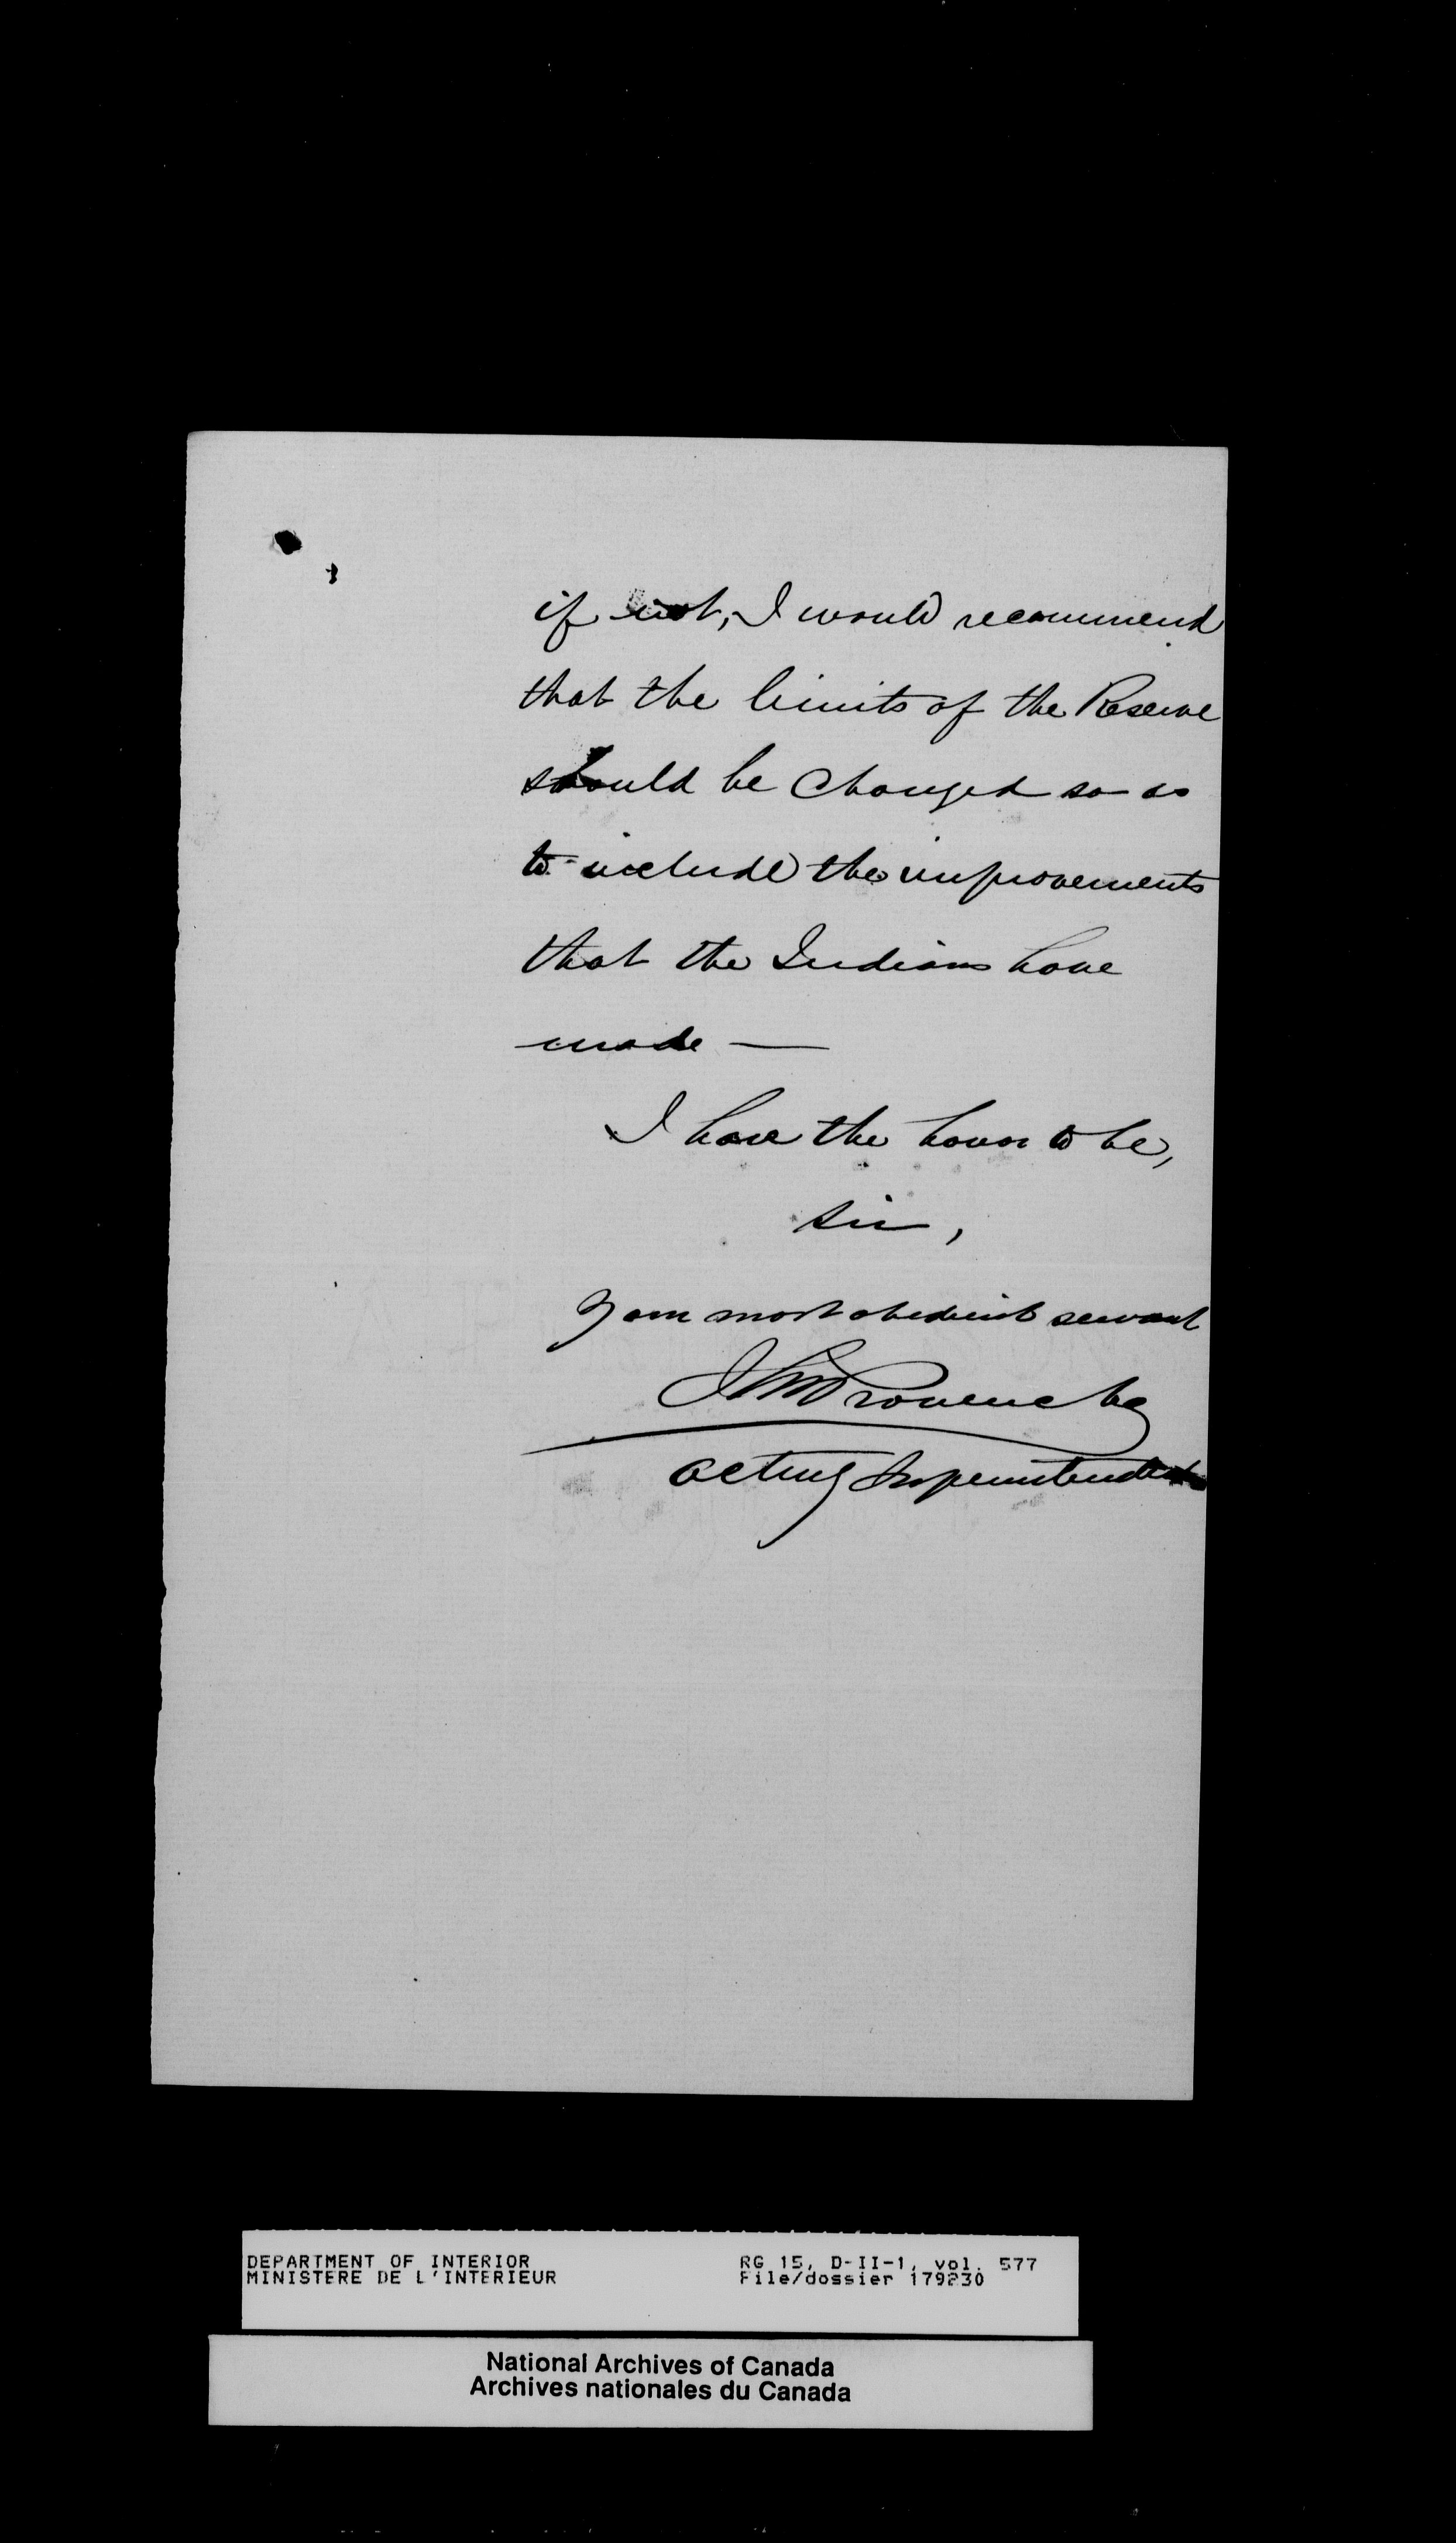 if not, I would recommend
that the limits of the Reserve
should be changed so as
to include the improvements
that the Indians have
made —
I have the honor to be,
Sir,
Your most obedient servant
J A N Provencher
Acting Superintendent
DEPARTMENT OF INTERIOR
MINISTERE DE L'INTERIEUR
RG 15, D-II-1, vol. 577
File/dossier 179230
National Archives of Canada
Archives nationales du Canada